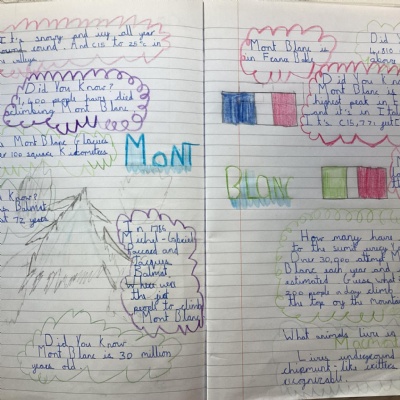 It's snowy and icy all year
around round. And C15 to 25°c in
valleys
Did You Know?
1,400 people have died
climbing Mont Blanc
Mont Blanc Glacier
100 square Kilometers
MONT
Know?
Balmat
72 years
In 1786
Michel-Gabriel
Paccard and
Jacques
Balmat
were
the
people to climb
Mont Blanc
Did You Know
Mont Blanc is 30 million
years old.
Mont Blanc is
in
Did Y
4,810
above
Did You Kno
Mont Blanc is
highest peak in
and it's in Ital
It's (15,771 feet
BLANC
How many have
to the sumit
Over 30,000 attempt M
Blanc each year and
estimated
200 people a day climb
the top of the Mountain
What animals live in
Lives underground
chipmunk-like critters
recognizable.